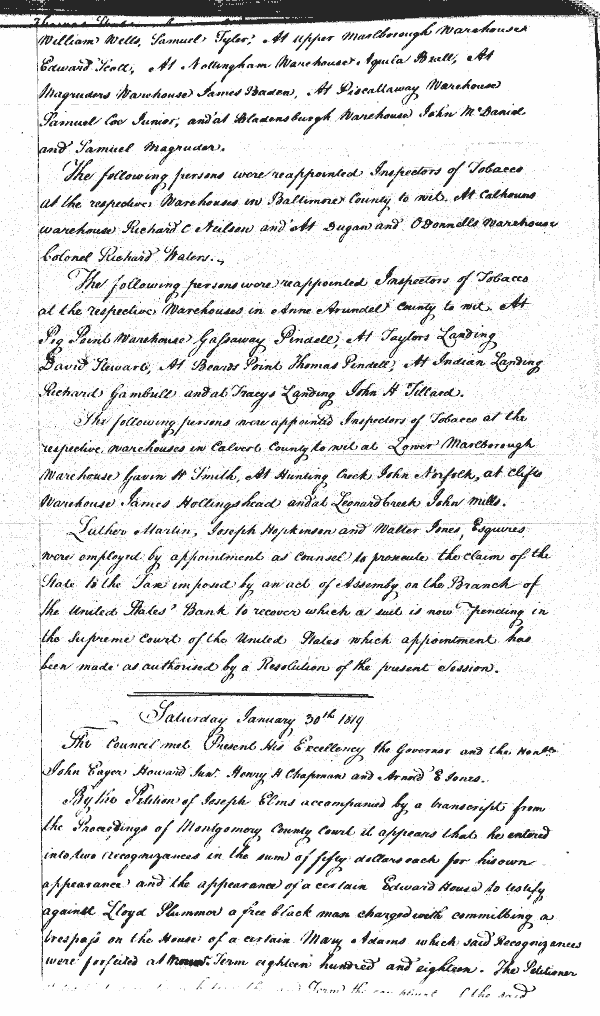 William Wells, Samuel Tyler, At upper Marlborough Warehouse
Edward Scott, At Nottingham Warehouse Aquila Beall, At
Magruders Warehouse James Baden, At Piscattaway Warehouse
Samuel Cox Junior, and at Bladensburgh Warehouse John McDaniel
and Samuel Magruder.
The following persons were reappointed Inspectors of Tobacco
at the respective Warehouses in Baltimore County to wit. At Calhouns
warehouse Richard C Neilson and At Dugan and ODonnells Warehouse
Colonel Richard Waters.
The following persons were reappointed Inspectors of Tobacco
at the respective Warehouses in Anne Arundel County to wit. At
Pig Point Warehouse Gassaway Pindell, At Taylors Landing
David Steward, At Beards Point Thomas Pindell, At Indian Landing
Richard Gambrill and at Tracys Landing John H Tillard.
The following persons were appointed Inspectors of Tobacco at the
respective warehouses in Calvert County to wit at Lower Marlborough
Warehouse Gavin H Smith, At Hunting Creek John Norfolk, at Clifts
Warehouse James Hollingshead and at Leonard Creek John Mills.
Luther Martin, Joseph Hopkinson and Walter Jones, Esquires
were employed by appointment as Counsel to prosecute the claim of the
State to the Tax imposed by an act of Assembly on the Branch of
the United States' Bank to recover which a suit is now pending in
the Supreme Court of the United States which appointment has
been made as authorised by a Resolution of the present Session.
Saturday January 30th 1819
The Council met Present His Excellency the Governor and the Honble
John Eager Howard Junr. Henry H Chapman and Arnold E Jones.
By the Petition of Joseph Elms accompanied by a transcript from
the Proceedings of Montgomery County Court it appears that he entered
into two recognizances in the sum of fifty dollars each for his own
appearance and the appearance of a certain Edward House to testify
against Lloyd Plummer a free black man charged with committing a
trespass on the House of a certain Mary Adams which said Recognizances
were forfeited at Term eighteen hundred and eighteen. The Petitioner